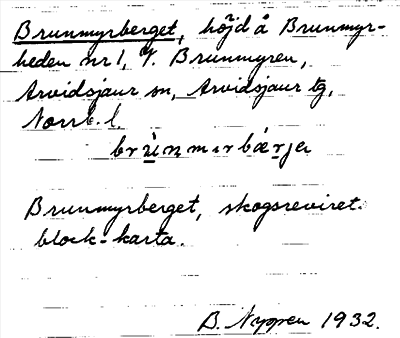 Brunmyrberget, höjd å Brunmyr-
heden nr 1, V. Brunmyren,
Arvidsjaur sn, Arvidsjaur tg,
Norrb. l.
brùnmɪrbærje
Brunmyrberget, skogsreviret.
block-karta.
B. Nygren 1932.